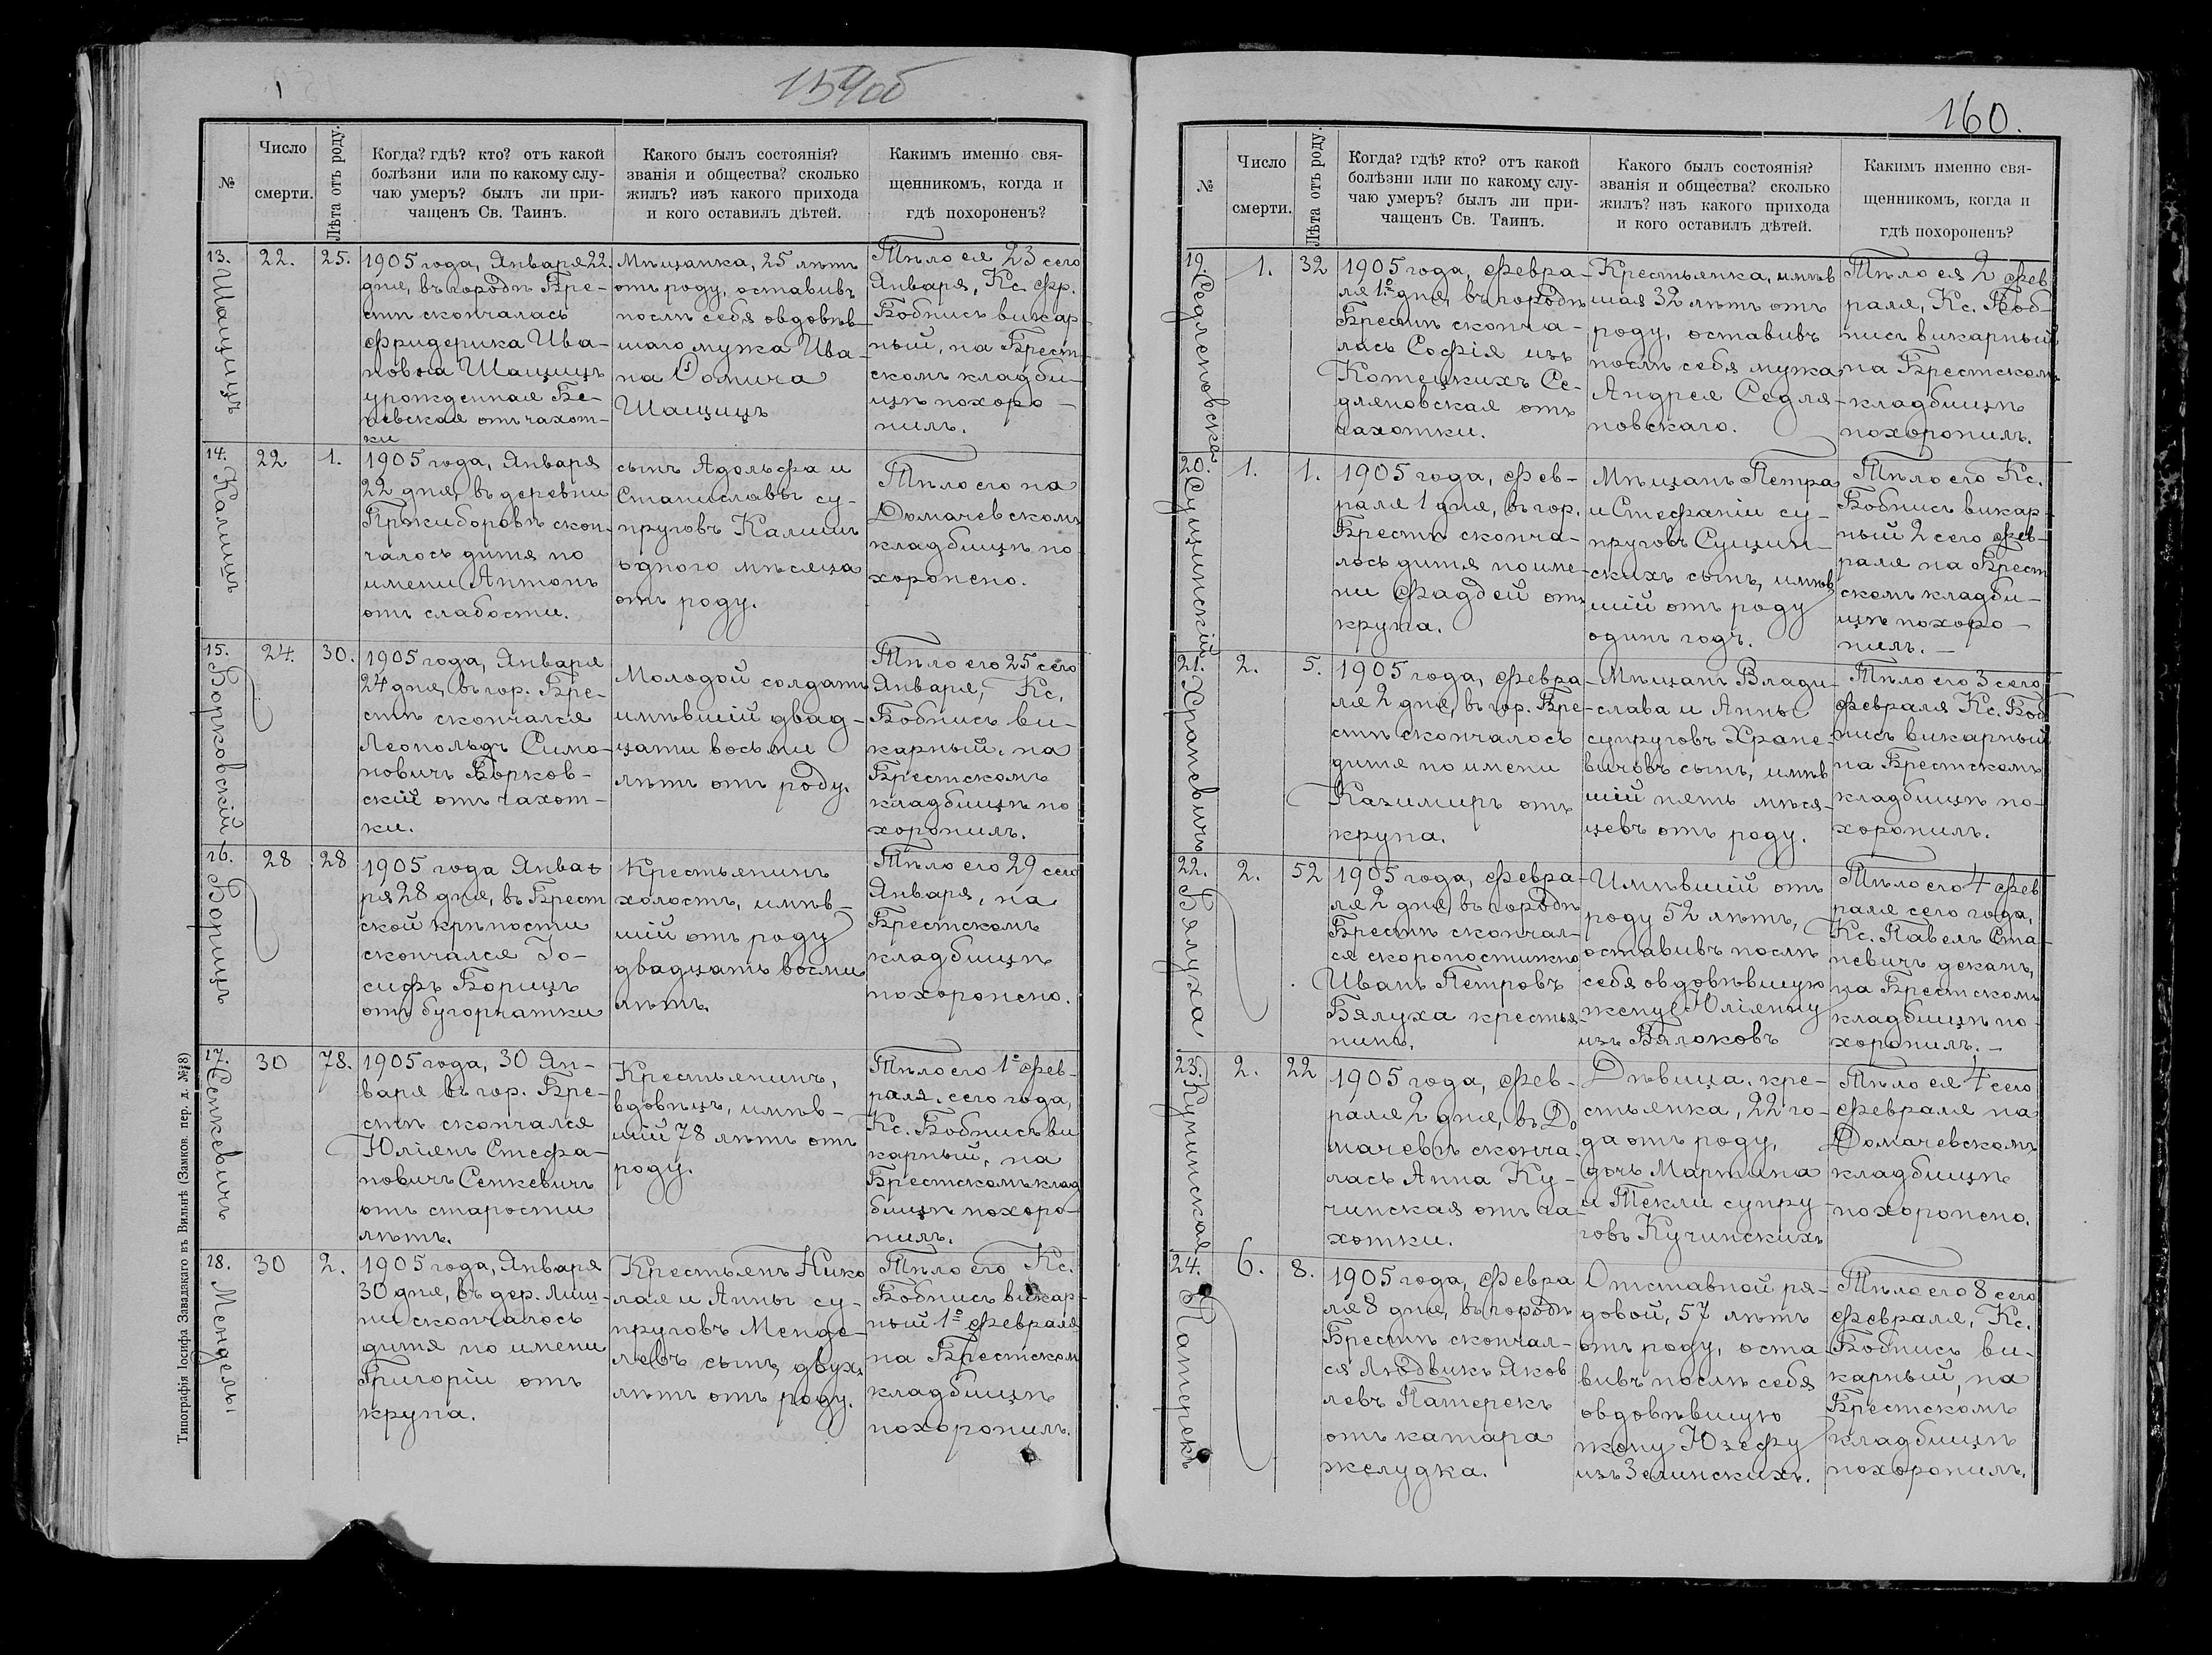 159об
№
Число
смерти.
Лѣта отъ роду.
Когда? гдѣ? кто? отъ какой
болѣзни или по какому слу-
чаю умеръ? былъ ли при-
чащенъ Св. Таинъ.
Какого былъ состоянія?
званія и общества? сколько
жилъ? изъ какого прихода
и кого оставилъ дѣтей.
Какимъ именно свя-
щенникомъ, когда и
гдѣ похороненъ?
13.
Шащицъ
22.
25.
1905 года, Января 22.
дня, въ городѣ Бре-
стѣ скончалась
Фридерика Ива-
нова Шащицъ
урожденная Бе-
невская отъ чахот-
ки
Мѣщанка, 25 лѣтъ
отъ роду, оставивъ
послѣ себя овдовѣв-
шаго мужа Ива-
на Ѳомича
Шащицъ
Тѣло ея 23 сего
Января, Кс. Фр.
Бобнисъ викар-
ный, на Брест-
скомъ кладби-
щѣ похоро-
нилъ.
14.
Калишъ
22
1.
1905 года, Января
22 дня, въ деревни
Пржиборовѣ скон-
чалось дитя по
имени Антонъ
отъ слабости.
сынъ Адольфа и
Станиславы су-
пруговъ Калишъ
одного мѣсяца
отъ роду.
Тѣло его на
Домачевскомъ
кладбищѣ по-
хоронено.
15.
Борковскій
24.
30.
1905 года, Января
24 дня, въ гор. Бре-
стѣ скончался
Леопольдъ Симо-
новичъ Борков-
скій отъ чахот-
ки.
Молодой солдатъ
имѣвшій двад-
цати восьми
лѣтъ отъ роду.
Тѣло его 25 сего
Января, Кс.
Бобнисъ ви-
карный, на
Брестскомъ
кладбищѣ по
хоронилъ.
16.
Борицъ
28
28
1905 года Янва-
ря 28 дня, въ Брест
ской крѣпости
скончался Іо-
сифъ Борицъ
отъ бугорчатки
Крестьянинъ
холостъ, имѣв-
шій отъ роду
двадцать восми
лѣтъ.
Тѣло его 29 сего
Января, на
Брестскомъ
кладбищѣ
похоронено.
17.
Сенкевичъ
30
78.
1905 года, 30 Ян-
варя въ гор. Бре-
стѣ скончался
Юліянъ Стефа-
новичъ Сенкевичъ
отъ старости
лѣтъ.
Крестьянинъ,
вдовецъ, имѣв-
шій 78 лѣтъ отъ
роду.
Тѣло его 1º Фев-
раля сего года,
Кс. Бобнисъ ви
карный, на
Брестскомъ клад
бищѣ похоро-
нилъ.
18.
Мендель
30
2.
1905 года, Января
30 дня, въ дер. Лищ-
ни скончалось
дитя по имени
Григорій отъ
крупа.
Крестьянъ Нико
лая и Анны су-
пруговъ Менде-
левъ сынъ, двухъ
лѣтъ отъ роду.
Тѣло его Кс.
Бобнисъ викар-
ный 1º Февраля
на Брестском
кладбищѣ
похоронилъ.
Типографія Іосифа Завадзкаго въ Вильнѣ
160.
№
Число
смерти.
Лѣта отъ роду.
Когда? гдѣ? кто? отъ какой
болѣзни или по какому слу-
чаю умеръ? былъ ли при-
чащенъ Св. Таинъ.
Какого былъ состоянія?
званія и общества? сколько
жилъ? изъ какого прихода
и кого оставилъ дѣтей.
Какимъ именно свя-
щенникомъ, когда и
гдѣ похороненъ?
19.
Седляновская
1.
32
1905 года, Февра-
ля 1º дня, въ городѣ
Брестѣ сконча-
лась Софія изъ
Котецкихъ Се-
дляновская отъ
чахотки.
Крестьянка, имѣв
шая 32 лѣтъ отъ
роду, оставивъ
послѣ себя мужа
Андрея Седля-
новскаго.
Тѣло ея 2 Фев
раля, Кс. Боб-
нисъ викарный
на Брестскомъ
кладбищѣ
похоронилъ.
20.
Сущинскій
1.
1.
1905 года, Фев-
раля 1 дня, въ гор.
Брестѣ сконча-
лось дитя по име-
ни Фаддей отъ
крупа.
Мѣщанъ Петра
и Стефаніи су-
пруговъ Сущин-
скихъ сынъ, имѣв
шій отъ роду
одинъ годъ.
Тѣло его Кс.
Бобнисъ викар-
ный 2 сего Фев-
раля на Брест
скомъ кладби-
щѣ похоро-
нилъ.
21.
Храневичъ
2.
5.
1905 года, Февра-
ля 2 дня, въ гор. Бре-
стѣ скончалось
дитя по имени
Казимиръ отъ
крупа.
Мѣщанъ Влади-
слава и Анны
супруговъ Хране-
вичовъ сынъ, имѣв
шій пять мѣся-
цевъ отъ роду.
Тѣло его 3 сего
Февраля Кс. Боб
нисъ викарный
на Брестскомъ
кладбищѣ по-
хоронилъ.
22.
Бялуха
2.
52
1905 года, Февра-
ля 2 дня, въ городѣ
Брестѣ скончал-
ся скоропостижно
Иванъ Петровъ
Бялуха крестья-
нинъ.
Имѣвшій отъ
роду 52 лѣтъ,
оставивъ послѣ
себя овдовѣвшую
жену Юліянну
изъ Бялоковъ
Тѣло его 4 Фев
раля сего года,
Кс. Павелъ Ста-
невичъ деканъ,
на Брестскомъ
кладбищѣ по-
хоронилъ.
23.
Кучинская
2.
22
1905 года, Фев-
раля 2 дня, въ До
мачевѣ сконча-
лась Анна Ку-
чинская отъ ча-
хотки.
Дѣвица, кре-
стьянка, 22 го-
да отъ роду,
дочь Мартина
и Текли супру-
говъ Кучинскихъ
Тѣло ея 4 сего
Февраля на
Домачевскомъ
кладбищѣ
похоронено.
24.
Патерекъ
6.
8.
1905 года, Февра
ля 8 дня, въ городѣ
Брестѣ скончал-
ся Людвикъ Яков
левъ Патерекъ
отъ катара
желудка.
Отставной ря-
довой, 57 лѣтъ
отъ роду, оста-
вивъ послѣ себя
овдовѣвшую
жену Юзефу
изъ Зелинскихъ.
Тѣло его 8 сего
Февраля, Кс.
Бобнисъ ви-
карный, на
Брестскомъ
кладбищѣ
похоронилъ.